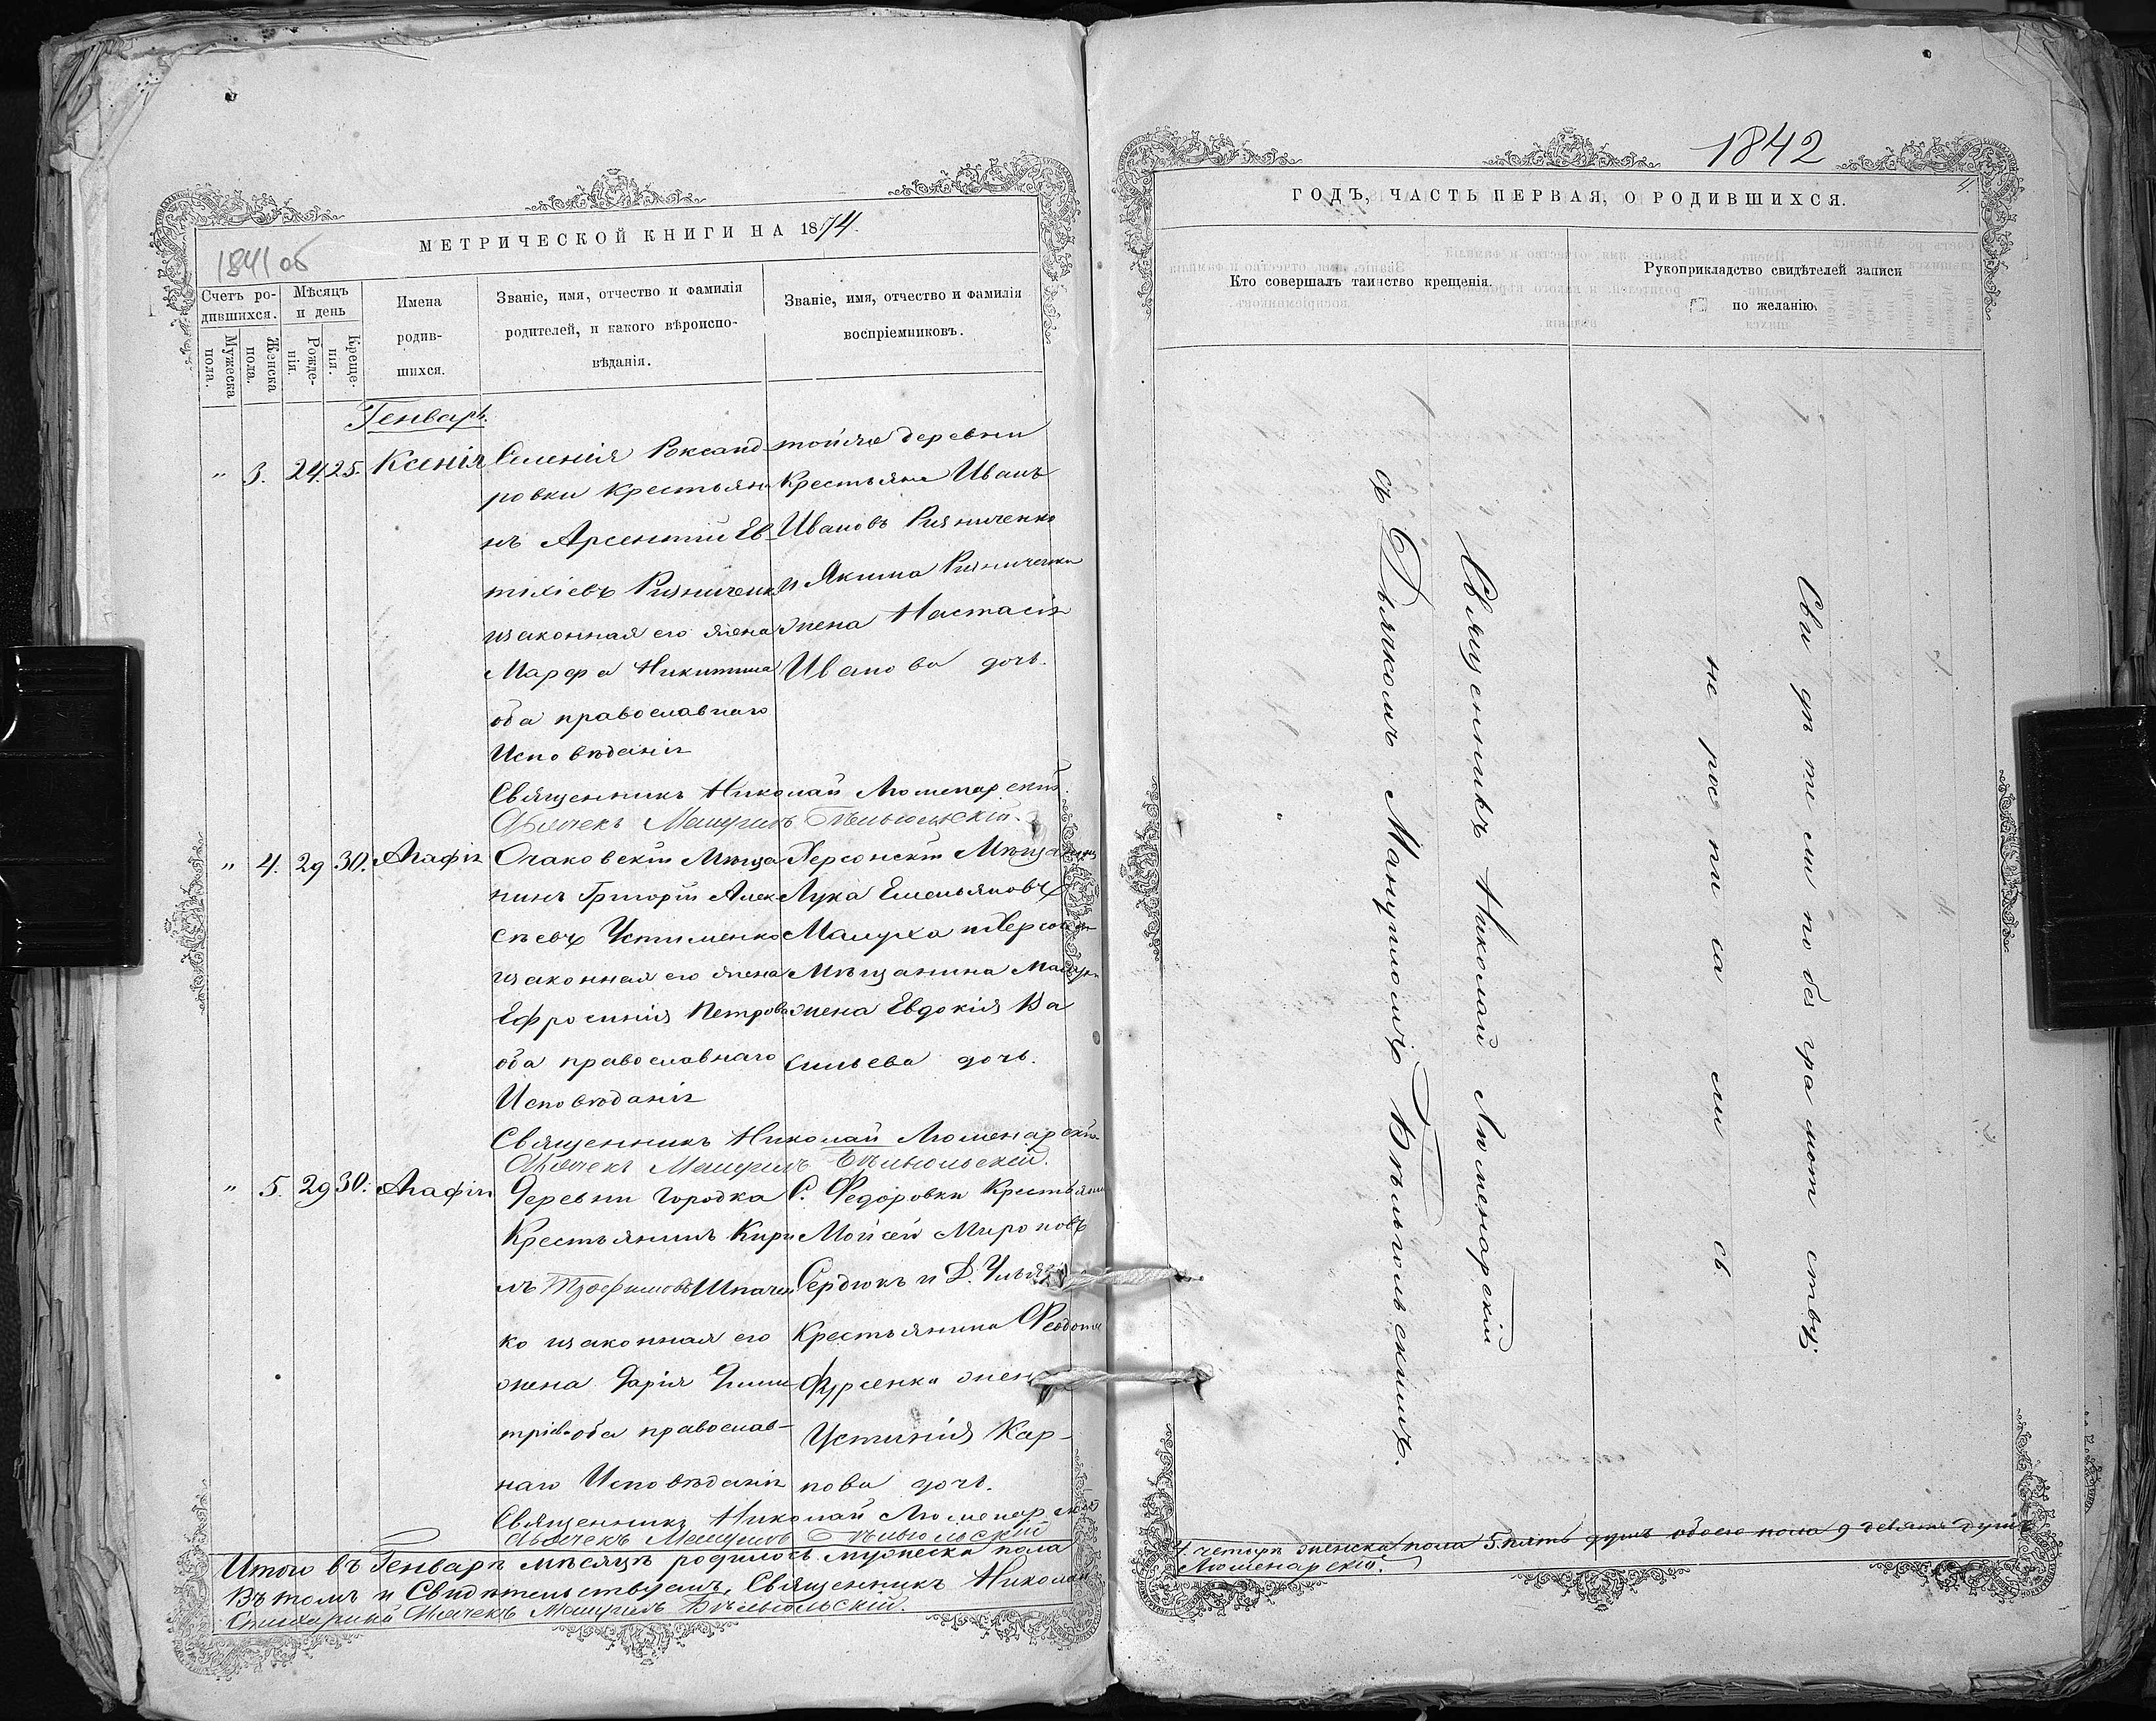 МЕТРИЧЕСКОЙ КНИГИ НА 1874.
1841 об
Счетъ ро-
дившихся.
Мужеска
пола.
Женска
пола.
Мѣсяцъ
и день
Рожде-
нія.
Креще-
нія.
Имена
родив-
шихся.
Званіе, имя, отчество и фамилія
родителей, и какого вѣроиспо-
вѣданія.
Званіе, имя, отчество и фамилія
воспріемниковъ.
Генварь.
" 3. 24. 25. Ксенія
Селенія Роксанд
ровки крестьяни
нъ Арсентій Ев
тихіевъ Ризниченк
изаконная его жена
Марфа Никитина
оба православнаго
Исповѣданія
тойже деревни
Крестьяне Иванъ
Ивановъ Ризниченко
и Якима Ризниченки
жена Настасія
Иванова дочь.
Священникъ Николай Люменарскій.
Дьячекъ Мануилъ Бѣльгольскій.
" 4. 29 30. Агафія
Очаковскій Мѣща
нинъ Григорій Алек
сѣевъ Устименко
изаконная его жена
Ефросинія Петрова
оба православнаго
Исповѣданія
Херсонскій Мѣщанинъ
Лука Емельяновъ
Малуха и Херсон
Мѣщанина
жена Евдокія Ва
сильева дочь.
Священникъ Николай Люменарскій
Дьячекъ Мануилъ Бѣльгольскій.
" 5. 29 30. Агафія
Деревни Городка
Крестьянинъ Кири
лъ Трофимовъ Шпачен
ко изаконная его
жена Дарія Дими
тріева оба православ-
наго Исповѣданія
С. Федоровки Крестьянинъ
Мойсей Мироновъ
Сердюкъ и Д.
Крестьянина Феодота
Фурсенка жена
Устинія Кар-
пова дочь.
Священникъ Николай Люменарскій
Дьячекъ Мануилъ Бѣльгольскій
Итого въ Генварѣ мѣсяцѣ родилось мужеска пола
Въ томъ и Свидѣтельствуемъ, Священникъ Николай
Стихарный Дьячекъ Мануилъ Бѣльгольскій.
1842
4.
ГОДЪ, ЧАСТЬ ПЕРВАЯ, О РОДИВШИХСЯ.
Кто совершалъ таинство крещенія.
Рукоприкладство свидѣтелей записи
по желанію.
Священникъ Николай Люменарскій
съ Дьячкомъ Мануиломъ Бѣльгольскимъ.
Свидѣтели по безграмотству
не росписались
4 четыре женска пола 5. пять душъ обоего пола 9 девять душъ
Люменарскій.